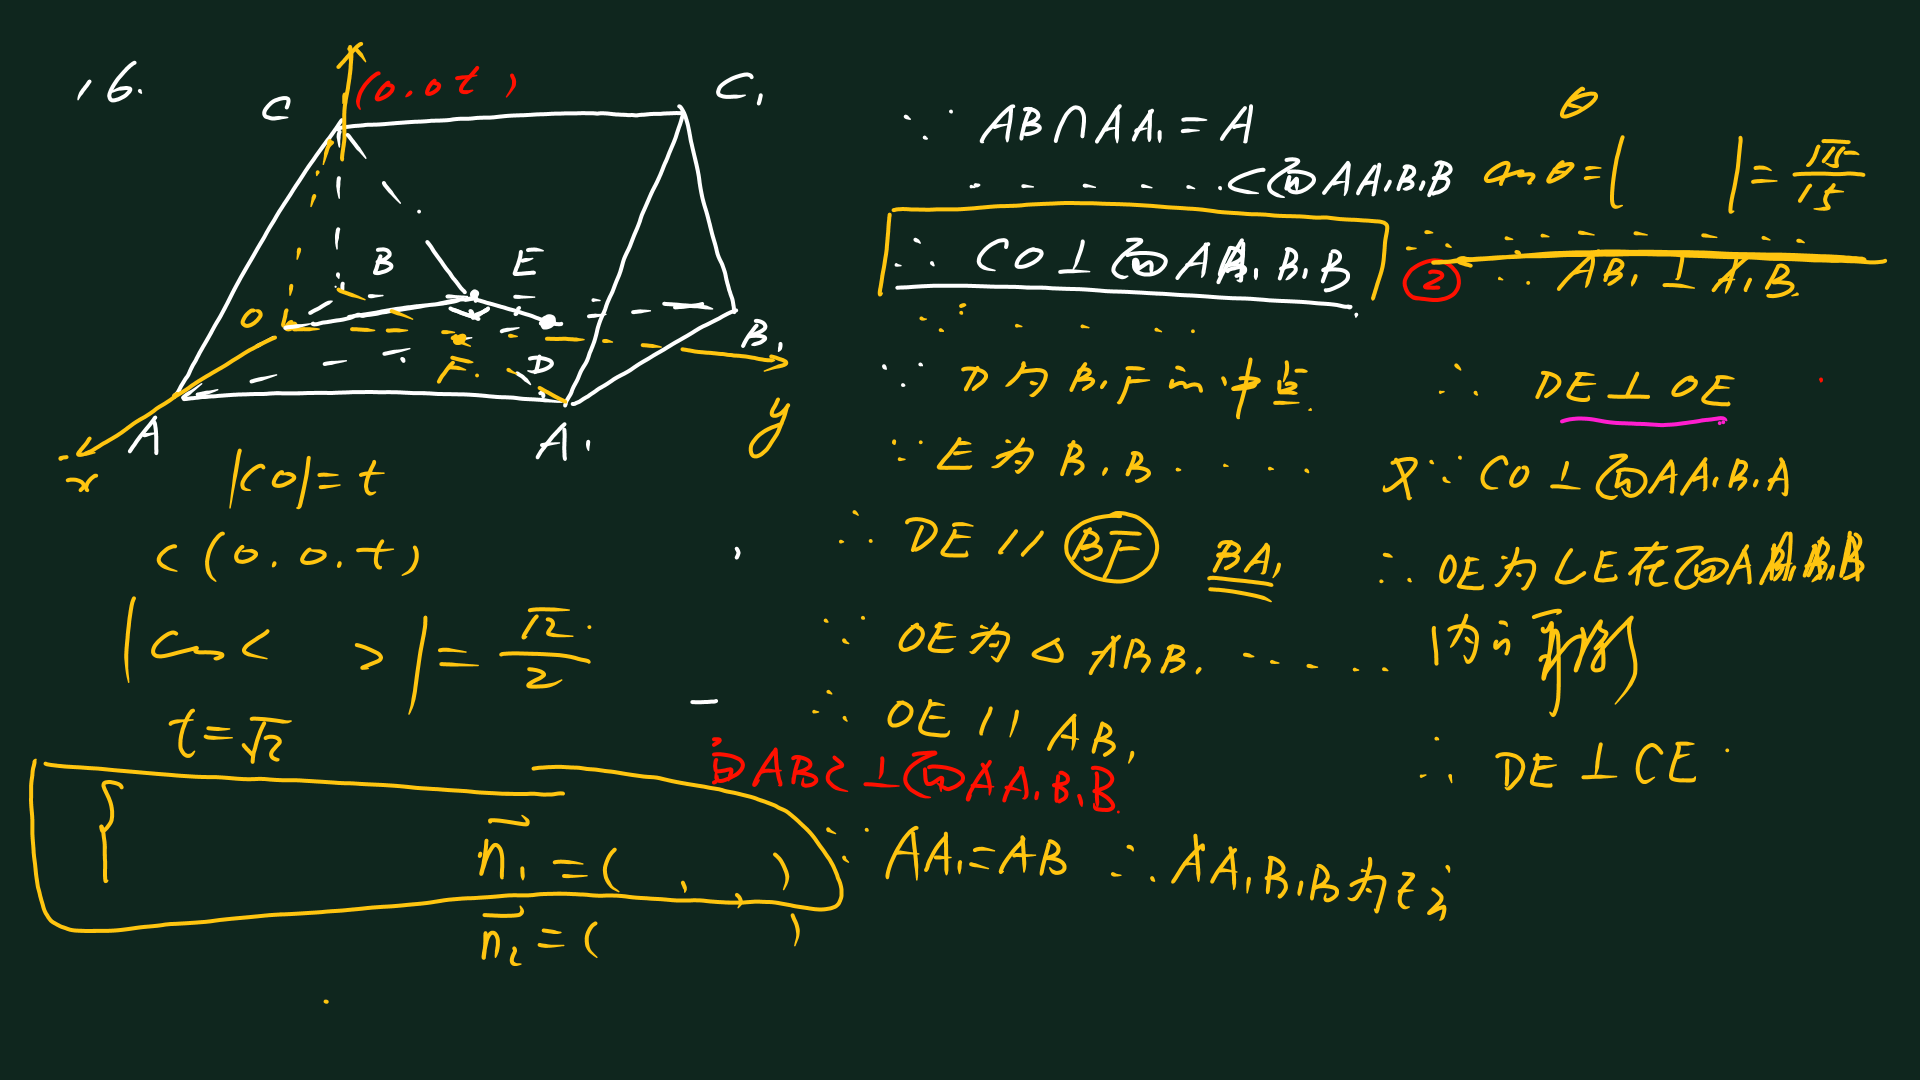 16.
C
(0.0t)
C₁
B
E
O
F
D
B₁
A
A₁
x
y
|CO|=t
C(0.0.t)
|cos< >|=√2/2
t=√2
{
n₁=( , , )
n₂=( )
∵ AB∩AA₁=A
......⊂面AA₁B₁B
∴ CO⊥面AA₁B₁B
∵ D为B₁F的中点
∵ E为B₁B....
∴ DE//BF BA₁
∵ OE为△ABB₁.....
∴ OE//AB₁
面ABC⊥面AA₁B₁B
∵ AA₁=AB ∴ AA₁B₁B为
θ
cosθ=| |=√15/15
② ∵ AB₁⊥A₁B
∴ DE⊥OE
又∵ CO⊥面AA₁B₁A
∴ OE为CE在面AB₁B₁B
内的射影
∴ DE⊥CE